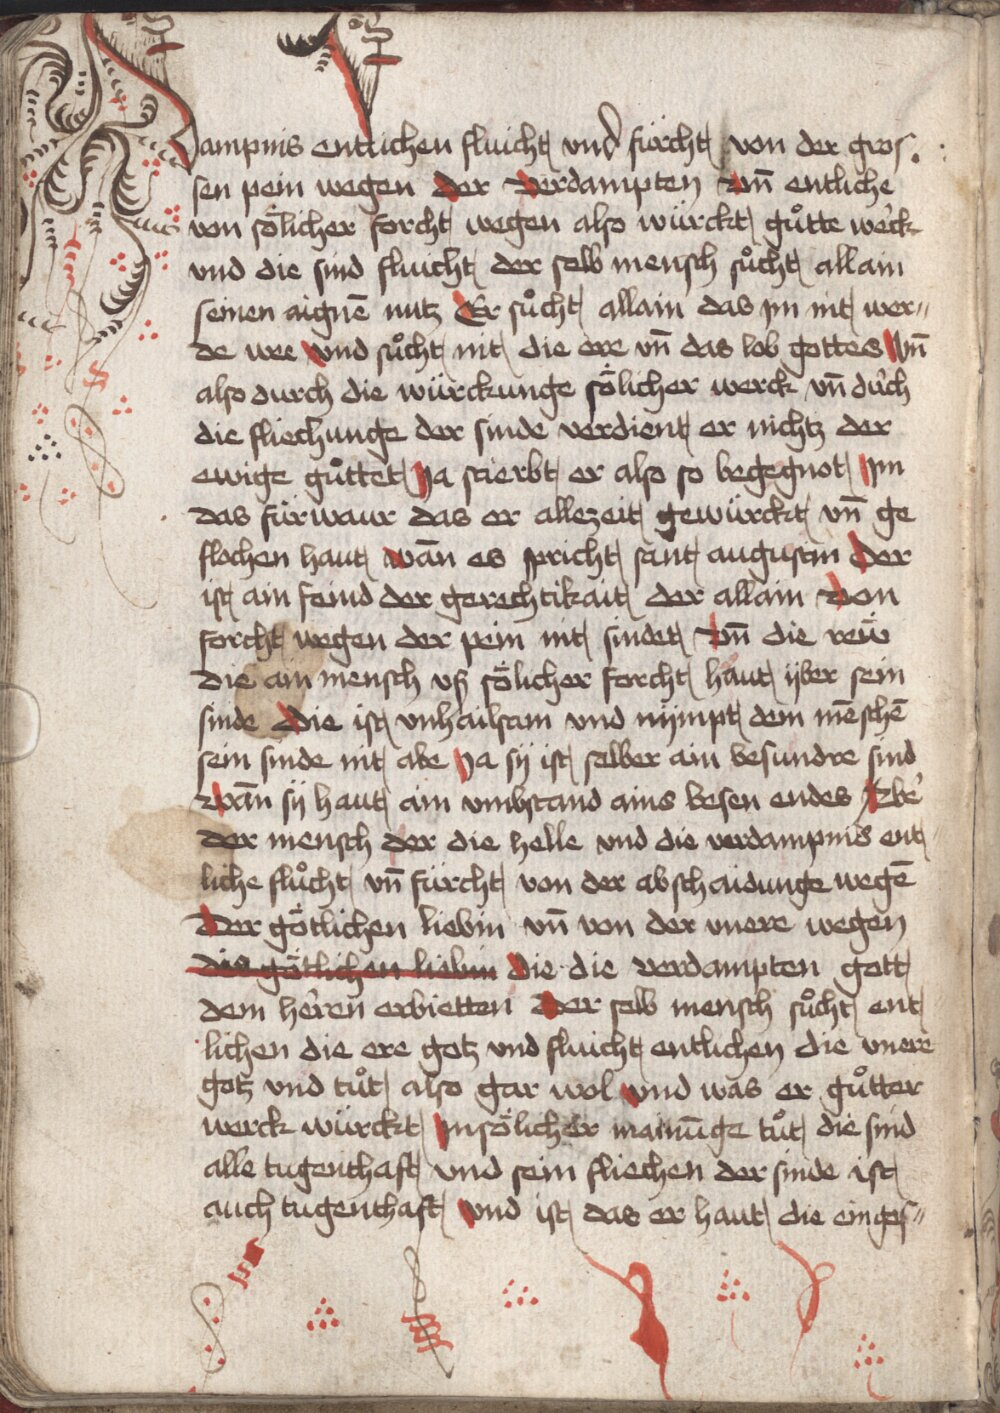 dampnis entlichen fluicht vnd fürcht von der gros
sen pein wegen der verdampten vn̄ entliche
von sölicher forcht wegen also würckt gůtte werck
vnd die sind fluicht der selb mensch sůcht allain
seinen aignē nutz Er sůcht allain das im nit wer〃
de wee vnd sůcht nit die ere vn̄ das lob gottes vn̄
also durch die würckunge sölicher werck vn̄ durch
die fliechunge der sinde verdient er nichtz der
ewige gůttet Ja stierbt er also so begegnot Im
das fürwaur das er allezeit gewürckt vn̄ ge
flochen haut wān es spricht sant augustin der
ist ain feind der gerechtikait der allain von
forcht wegen der pein nit sindet vn̄ die rew̎
die ain mensch vß sölicher forcht haut ÿber sein
sinde Die ist vnhailsam vnd nÿmpt dem mēschē
sein sinde nit abe Ja sÿ ist selber ain besundre sind
wān sÿ haut ain vmbstand ains besen endes Aber
der mensch der die helle vnd die verdampnis ent
liche flůcht vn̄ fürcht von der abschaidunge wegē
Der götlichen liebin vn̄ von der vnere wegen
die götlichen liebin die die verdampten gott
dem heren erbietten Der selb mensch sůcht ent
lichen die ere gotz vnd fluicht entlichen die vnere
gotz vnd tůt also gar wol vnd was er gůtter
werck würckt In sölicher mainūge tůt die sind
alle tugenthaft vnd sein fliechen der sinde ist
auch tugenthaft vnd ist das er haut die einges〃